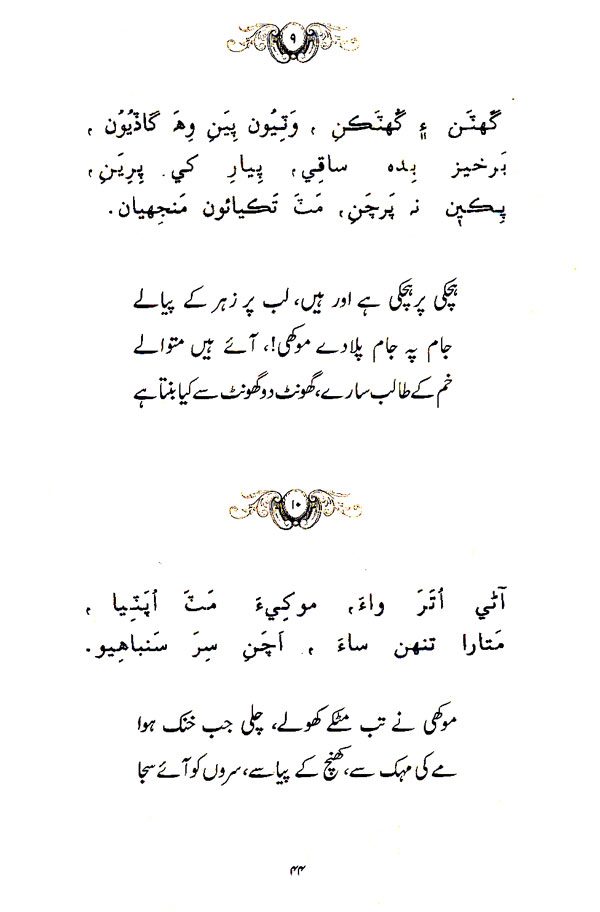 ۹
گُهٽَن ۽ گُهٽَڪَنِ ، وَٽِيُون پِيَنِ وِهَ گاڏيُوُن ،
بَرخيز بِده ساقِي، پِيارِ کي پِرِيَنِ،
پِڪَين نہ پَرچَنِ، مَٽَ تَڪيائون مَنجهيان.
ہچکی پر ہچکی ہے اور ہیں، لب پر زہر کے پیالے
جام پہ جام پلا دے موکھی!، آئے ہیں متوالے
خم کے طالب سارے، گھونٹ دو گھونٹ سے کیا بنتا ہے
۱۰
آڻي اُتَرَ واءَ، موکِيءَ مَٽَ اُپَٽِيا ،
مَتارا تنهن ساءَ ، اَچَنِ سِرَ سَنباهِيو.
موکھی نے تب مٹکے کھولے، چلی جب خنک ہوا
مے کی مہک سے، کھنچ کے پیاسے، سروں کو آئے سجا
۴۴